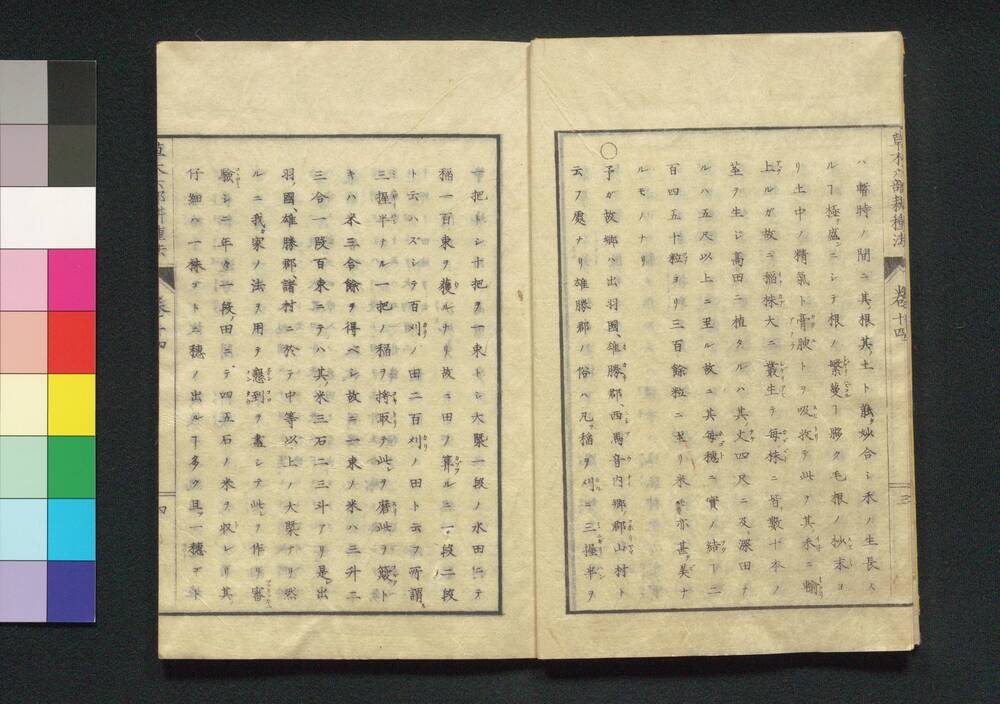 草木六部耕種法 卷十四 三
ハ暫時ノ間ニ其根其土ト融妙合シ禾ノ生長ス
ルヿ極盛ニシテ根ノ繁蔓ヿ夥ク毛根ノ杪末ヨ
リ土中ノ精氣ト膏腴トヲ吸收テ此ヲ其禾ニ輸
上ルガ故ニ稲株大ニ叢生ヲ每株ニ皆數十本ノ
莖ヲ生シ高田ニ植タルハ其丈四尺ニ及深田ナ
ルハ五尺以上ニ至ル故ニ其每穗ニ實ノ結ヿ二
百四五十粒ヨリ三百餘粒ニ至リ米亦甚美ナ
ルモノナリ
○予ガ故鄉ハ出羽國雄勝郡西馬音内鄉郡山村ト
云フ處ナリ雄勝郡ノ俗ハ凡稲ヲ刈ニ三握半ヲ
一把トシ十把ヲ一束トシ大槩一段ノ水田ニテ
稲一百束ヲ穫ルナリ故ニ田ノ算ルニ一段二段
ト云ハズシテ百刈ノ田二百刈ノ田ト云フ所謂
三握半ナル一把ノ稲ヲ搾取テ此ヲ磨此ヲ簸ト
キハ米三合餘ヲ得ベシ故ニ一束ノ米ハ三升二
三合一段百束ニテハ其米三石二三斗アリ是出
羽國雄勝郡諸村ニ於テ中等以上ノ大槩ナリ然
ルニ我家ノ法ヲ用テ懇到ヲ盡シテ此ヲ作リ審
驗シニ年々一段田ニテ四五石ノ米ヲ收レリ其
仔細ハ一株ゴトニ穗ノ出ルヿ多ク且一穗デ
卷十四 四